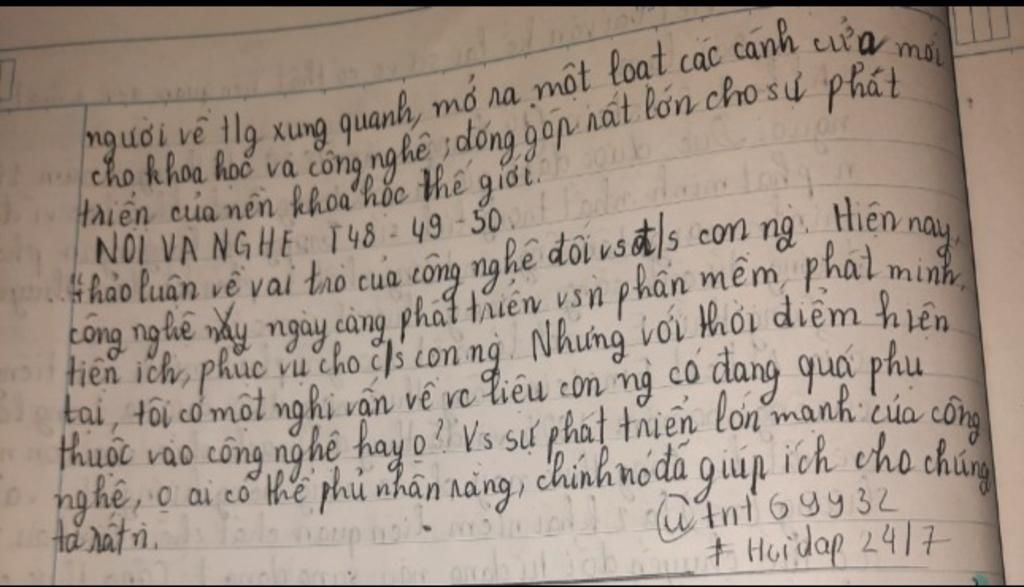 người về tlg xung quanh, mở ra một loạt các cánh cửa mới
cho khoa học và công nghệ, đóng góp rất lớn cho sự phát
triển của nền khoa học thế giới.
NÓI VÀ NGHE T48 - 49 - 50.
Thảo luận về vai trò của công nghệ đối vs đ/s con ng. Hiện nay,
công nghệ ngày càng phát triển vs n phần mềm, phát minh,
tiện ích, phục vụ cho c/s con ng. Nhưng với thời điểm hiện
tại, tôi có một nghi vấn về vc liệu con ng có đang quá phụ
thuộc vào công nghệ hay o? Vs sự phát triển lớn mạnh của công
nghệ, o ai có thể phủ nhận rằng, chính nó đã giúp ích cho chúng
ta rất n.
tnt69932
+ Hoidap 24/7